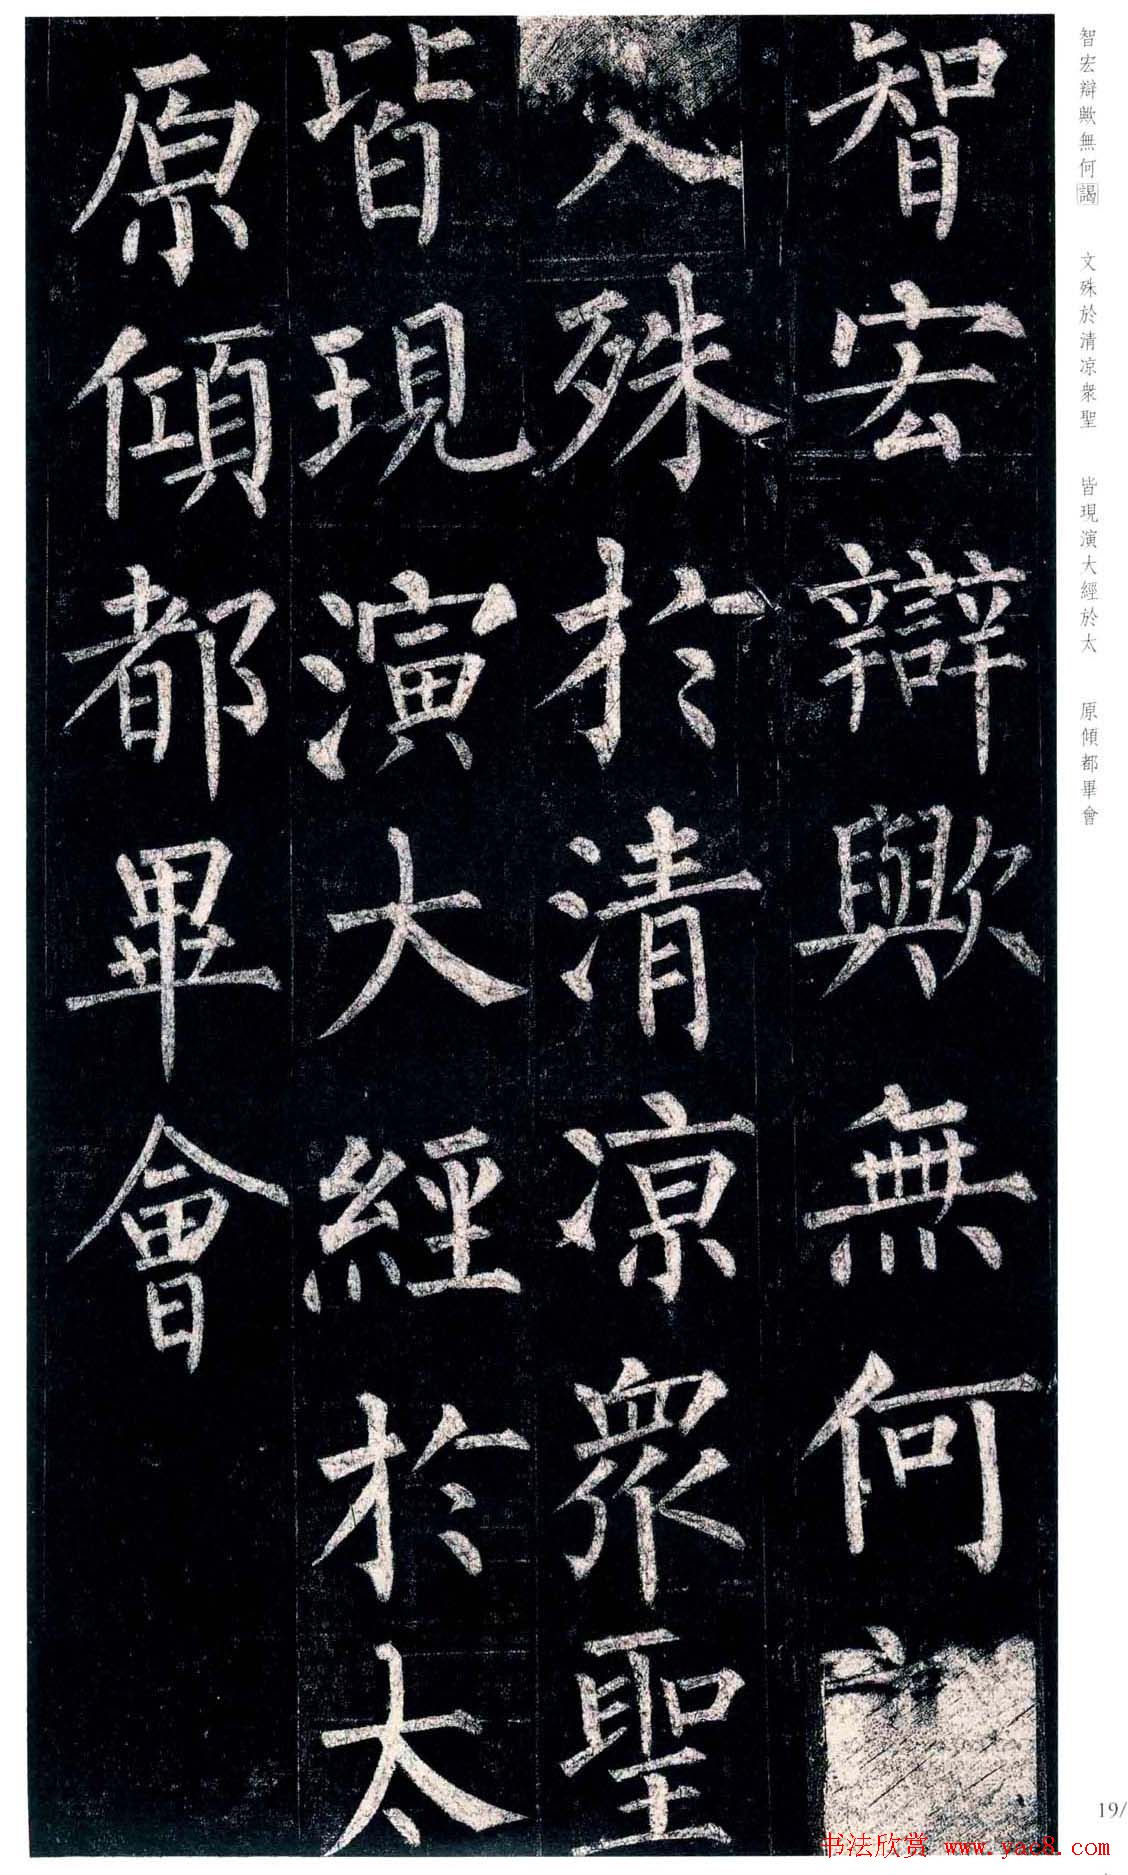 智宏辯歟無何
殊於清涼衆聖
皆現演大經於太
原傾都畢會
智宏辯歟無何謁 文殊於清凉衆聖 皆現演大經於太 原傾都畢會
19/
书法欣赏 www.yac8.com